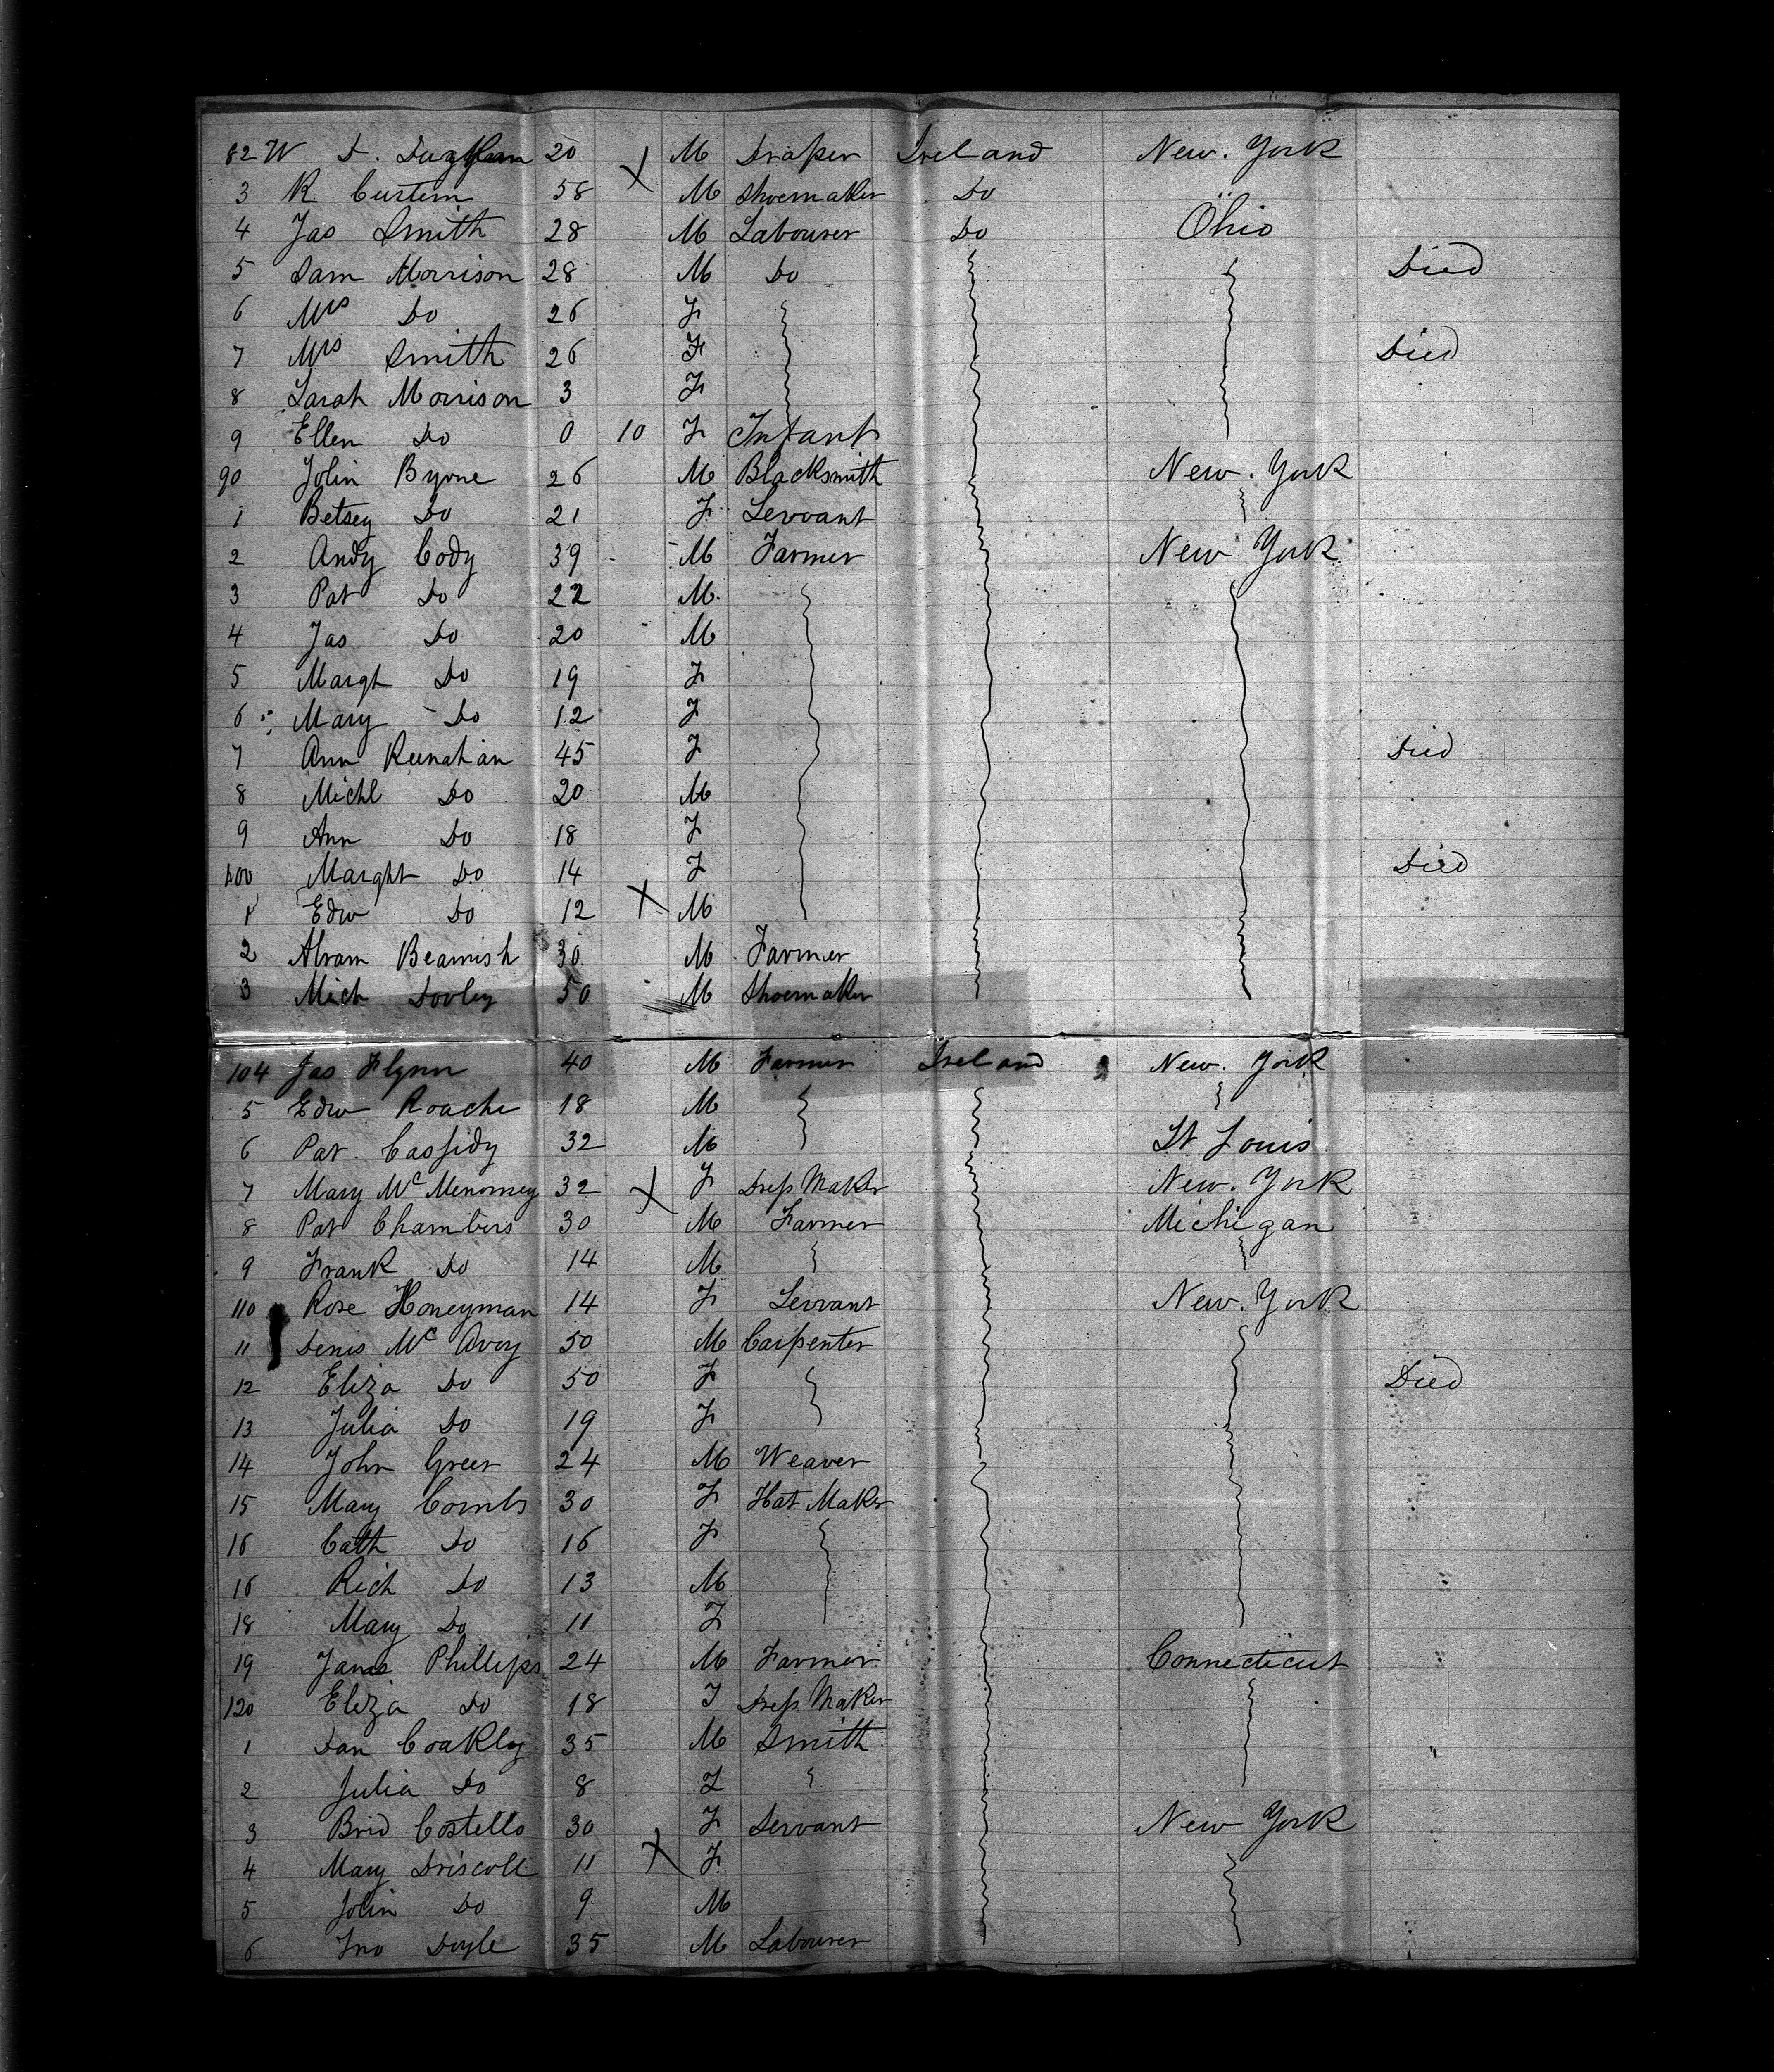 82 W D. 20 M Draper Ireland New. York
3 R 58 M Shoemaker Do
4 Jas Smith 28 M Labourer Do Ohio
5 Sam Morrison 28 M Do Died
6 Mrs Do 26 F
7 Mrs Smith 26 F Died
8 Sarah Morrison 3 F
9 Ellen Do 0 10 F Infant
90 John Byrne 26 M Blacksmith New. York
1 Betsey Do 21 F Servant
2 Andy Cody 39 M Farmer New York
3 Pat Do 22 M
4 Jas Do 20 M
5 Margt Do 19 F
6 Mary Do 12 F
7 Ann Keenahan 45 F Died
8 Michl Do 20 M
9 Ann Do 18 F
100 Marght Do 14 F Died
1 Edw Do 12 M
2 Abram Beamish 30 M Farmer
3 Mich Dooley 50 M Shoemaker
104 Jas Flynn 40 M Farmer Ireland New. York
5 Edw Roache 18 M
6 Pat. Cassidy 32 M St Louis
7 Mary Mc Menomey 32 F Dress Maker New. York
8 Pat Chambers 30 M Farmer Michigan
9 Frank Do 14 M
110 Rose Honeyman 14 F Servant New. York
11 Denis Mc Avoy 50 M Carpenter
12 Eliza Do 50 F Died
13 Julia Do 19 F
14 John Greer 24 M Weaver
15 Mary Combs 30 F Hat Maker
16 Cath Do 16 F
16 Rich Do 13 M
18 Mary Do 11 F
19 James Phillips 24 M Farmer Connecticut
120 Eliza Do 18 F Dress Maker
1 Dan Coakley 35 M Smith
2 Julia Do 8 F
3 Brid Costello 30 F Servant New York
4 Mary Driscoll 11 F
5 John Do 9 M
6 Jno Doyle 35 M Labourer